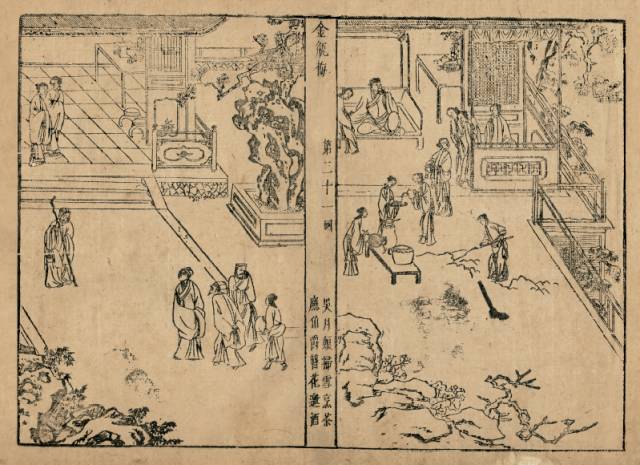 金瓶梅
第二十一回
吳月娘掃雪烹茶
應伯爵替花邀酒